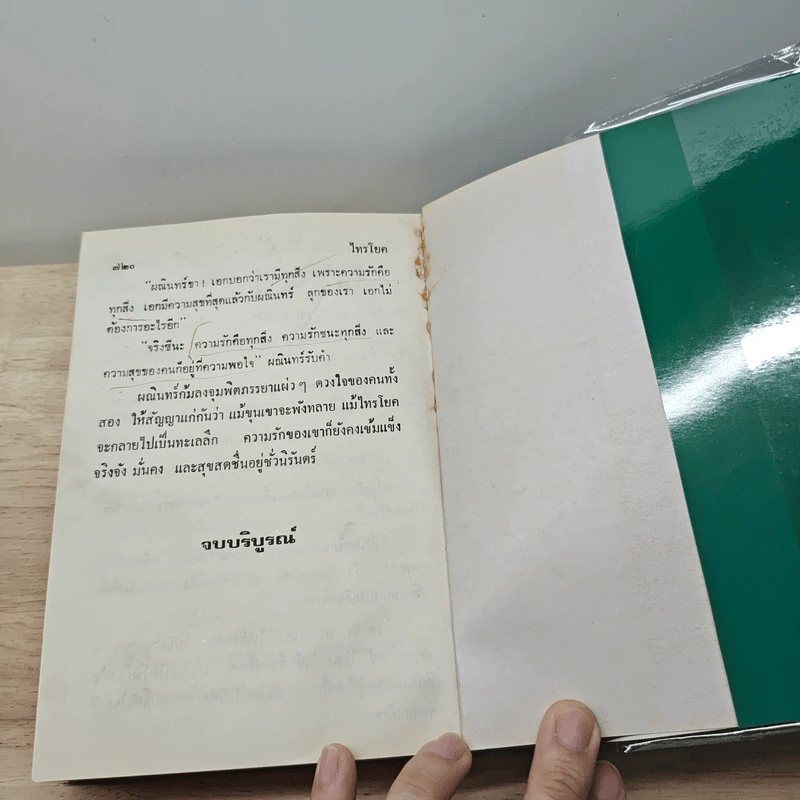 ๗๒๐
ไทรโยค
"ผณินทร์ขา! เอกบอกว่าเรามีทุกสิ่ง เพราะความรักคือ
ทุกสิ่ง เอกมีความสุขที่สุดแล้วกับผณินทร์ ลูกของเรา เอกไม่
ต้องการอะไรอีก"
"จริงซีนะ ความรักคือทุกสิ่ง ความรักชนะทุกสิ่ง และ
ความสุขของคนก็อยู่ที่ความพอใจ" ผณินทร์รับคำ
ผณินทร์ก้มลงจุมพิตภรรยาแผ่ว ๆ ดวงใจของคนทั้ง
สอง ให้สัญญาแก่กันว่า แม้ขุนเขาจะพังทลาย แม้ไทรโยค
จะกลายไปเป็นทะเลลึก ความรักของเขาก็ยังคงเข้มแข็ง
จริงจัง มั่นคง และสุขสดชื่นอยู่ชั่วนิรันดร์
จบบริบูรณ์